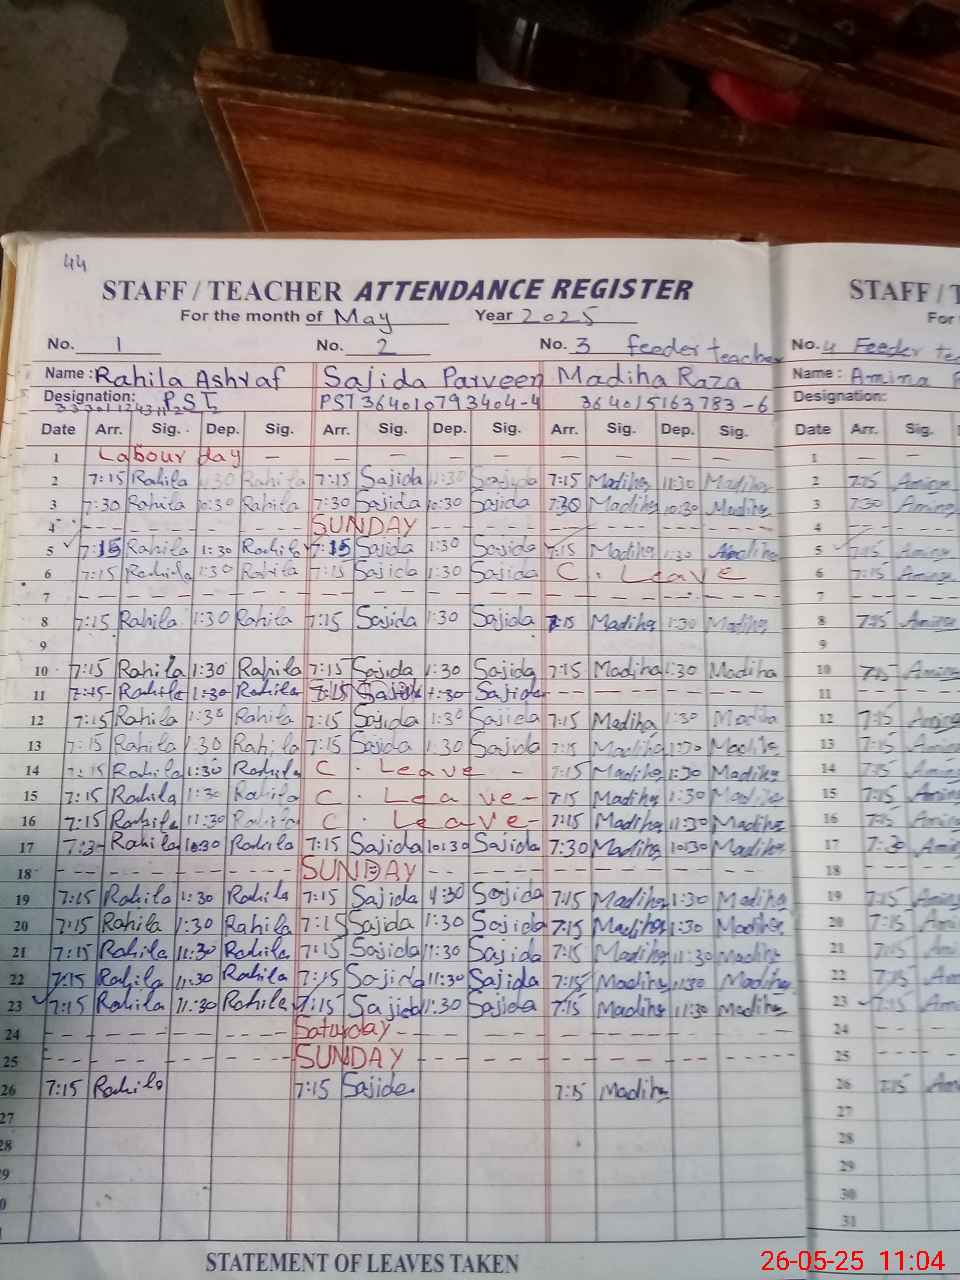 44
STAFF / TEACHER ATTENDANCE REGISTER STAFF / T
For the month of May Year 2025 For
No. 1 No. 2 No. 3 feeder teacher No. 4 Feeder tea
Name : Rahila Ashraf Sajida Parveen Madiha Raza Name : Amina
Designation: PST PST 364010793404-4 364015163783-6 Designation:
Date Arr. Sig. Dep. Sig. Arr. Sig. Dep. Sig. Arr. Sig. Dep. Sig. Date Arr. Sig.
1 Labour day — — — — — — — — — 1 — —
2 7:15 Rahila 11:30 Rahila 7:15 Sajida 11:30 Sajida 7:15 Madiha 11:30 Madiha 2 7:15 Amina
3 7:30 Rahila 10:30 Rahila 7:30 Sajida 10:30 Sajida 7:30 Madiha 10:30 Madiha 3 7:30 Amina
4 SUNDAY 4
5 7:15 Rahila 1:30 Rahila 7:15 Sajida 1:30 Sajida 7:15 Madiha 1:30 Madiha 5 7:15 Amina
6 7:15 Rahila 1:30 Rahila 7:15 Sajida 1:30 Sajida C. Leave 6 7:15 Amina
7 7
8 7:15 Rahila 1:30 Rahila 7:15 Sajida 1:30 Sajida 7:15 Madiha 1:30 Madiha 8 7:15 Amina
9 9
10 7:15 Rahila 1:30 Rahila 7:15 Sajida 1:30 Sajida 7:15 Madiha 1:30 Madiha 10 7:15 Amina
11 7:15 Rahila 1:30 Rahila 7:15 Sajida 1:30 Sajida 11
12 7:15 Rahila 1:30 Rahila 7:15 Sajida 1:30 Sajida 7:15 Madiha 1:30 Madiha 12 7:15 Amina
13 7:15 Rahila 1:30 Rahila 7:15 Sajida 1:30 Sajida 7:15 Madiha 1:30 Madiha 13 7:15 Amina
14 7:15 Rahila 1:30 Rahila C. Leave - 7:15 Madiha 1:30 Madiha 14 7:15 Amina
15 7:15 Rahila 1:30 Rahila C. Leave - 7:15 Madiha 1:30 Madiha 15 7:15 Amina
16 7:15 Rahila 11:30 Rahila C. Leave - 7:15 Madiha 11:30 Madiha 16 7:15 Amina
17 7:30 Rahila 10:30 Rahila 7:15 Sajida 10:30 Sajida 7:30 Madiha 10:30 Madiha 17 7:30 Ami
18 SUNDAY 18
19 7:15 Rahila 1:30 Rahila 7:15 Sajida 1:30 Sajida 7:15 Madiha 1:30 Madiha 19 7:15 Amina
20 7:15 Rahila 1:30 Rahila 7:15 Sajida 1:30 Sajida 7:15 Madiha 1:30 Madiha 20 7:15 Ami
21 7:15 Rahila 11:30 Rahila 7:15 Sajida 11:30 Sajida 7:15 Madiha 11:30 Madiha 21 7:15 Ami
22 7:15 Rahila 11:30 Rahila 7:15 Sajida 11:30 Sajida 7:15 Madiha 11:30 Madiha 22 7:15 Am
23 7:15 Rahila 11:30 Rahila 7:15 Sajida 11:30 Sajida 7:15 Madiha 11:30 Madiha 23 7:15 Am
24 Saturday 24
25 SUNDAY 25
26 7:15 Rahila 7:15 Sajida 7:15 Madiha 26 7:15 Am
27 27
28 28
9 29
0 30
31
STATEMENT OF LEAVES TAKEN
26-05-25 11:04